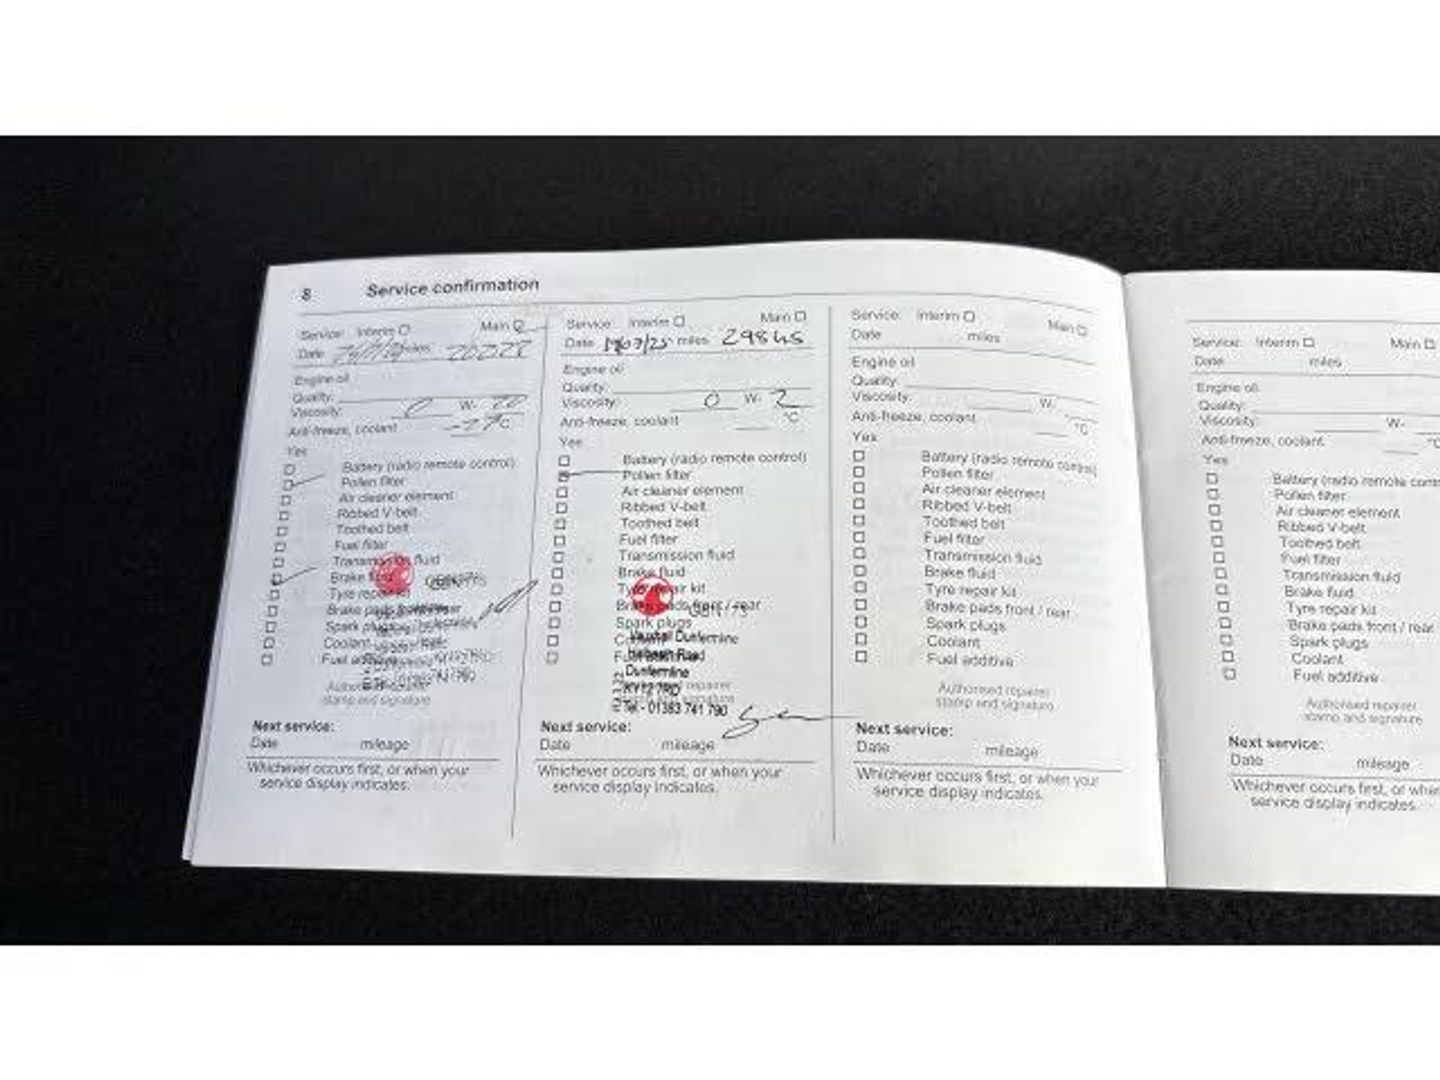 8 Service confirmation
Service: Interim Main
Date miles 20222
Engine oil
Quality:
Viscosity: 0 W- 20
Anti-freeze, coolant °C
Yes
Battery (radio remote control)
Pollen filter
Air cleaner element
Ribbed V-belt
Toothed belt
Fuel filter
Transmission fluid
Brake fluid
Tyre repair kit
Brake pads front / rear
Spark plugs
Coolant
Fuel additive
stamp and signature
Next service:
Date mileage
Whichever occurs first, or when your
service display indicates.
Service: Interim Main
Date miles 29845
Engine oil
Quality:
Viscosity: 0 W- 2
Anti-freeze, coolant °C
Yes
Battery (radio remote control)
Pollen filter
Air cleaner element
Ribbed V-belt
Toothed belt
Fuel filter
Transmission fluid
Brake fluid
Tyre repair kit
Brake pads front / rear
Spark plugs
Vauxhall Dunfermline
Halbeath Road
Dunfermline
KY12 7RD
Tel - 01383 741 790
Next service:
Date mileage
Whichever occurs first, or when your
service display indicates.
Service: Interim Main
Date miles
Engine oil
Quality:
Viscosity: W-
Anti-freeze, coolant °C
Yes
Battery (radio remote control)
Pollen filter
Air cleaner element
Ribbed V-belt
Toothed belt
Fuel filter
Transmission fluid
Brake fluid
Tyre repair kit
Brake pads front / rear
Spark plugs
Coolant
Fuel additive
Authorised repairer
stamp and signature
Next service:
Date mileage
Whichever occurs first, or when your
service display indicates.
Service: Interim Main
Date miles
Engine oil
Quality:
Viscosity: W-
Anti-freeze, coolant °C
Yes
Battery (radio remote contr
Pollen filter
Air cleaner element
Ribbed V-belt
Toothed belt
Fuel filter
Transmission fluid
Brake fluid
Tyre repair kit
Brake pads front / rear
Spark plugs
Coolant
Fuel additive
Authorised repairer
stamp and signature
Next service:
Date mileage
Whichever occurs first, or when
service display indicates.